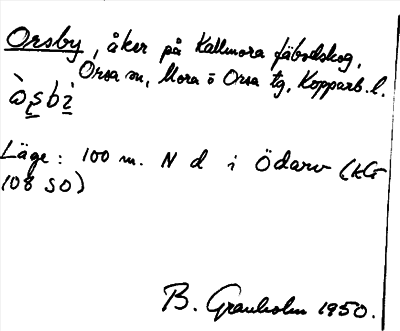 Orsby, åker på Kallmora fäbodskog,
Orsa sn, Mora o Orsa tg, Kopparb. l.
Läge: 100 m. N d i Ödarv (kG
108 SO)
B. Granholm 1950.